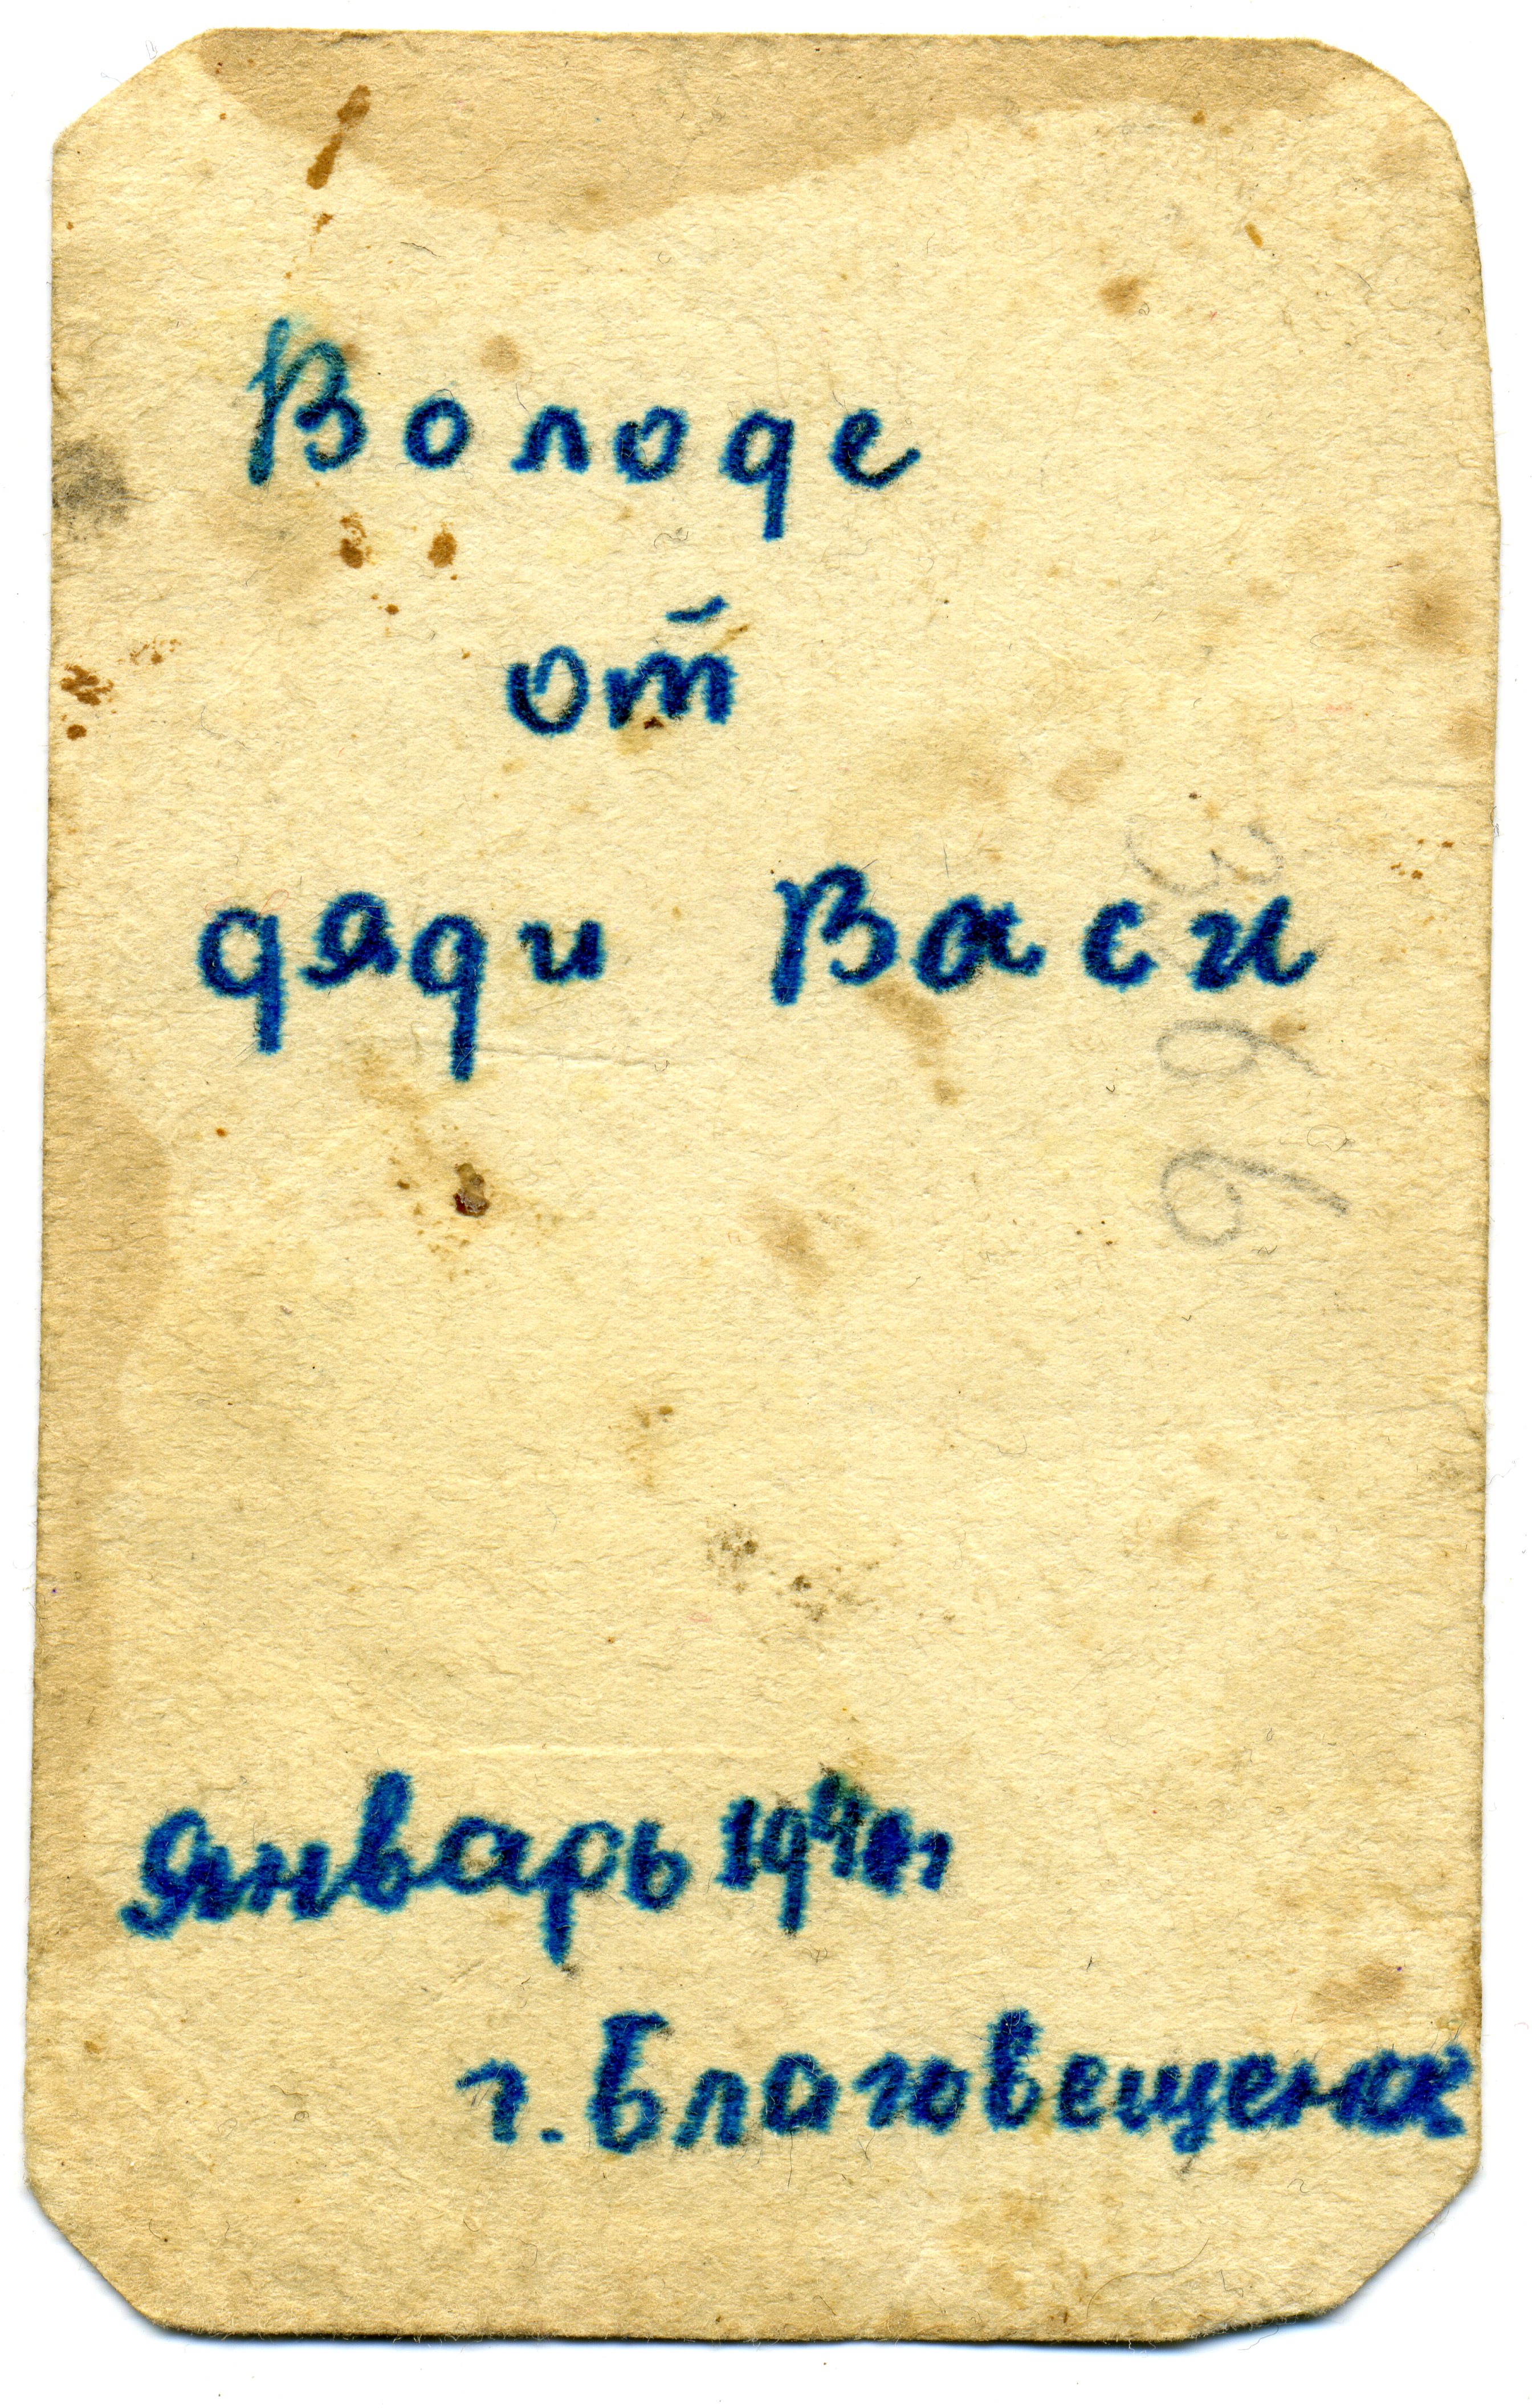 Володе
от
дяди Васи
366
Январь 1940г
г. Благовещенск